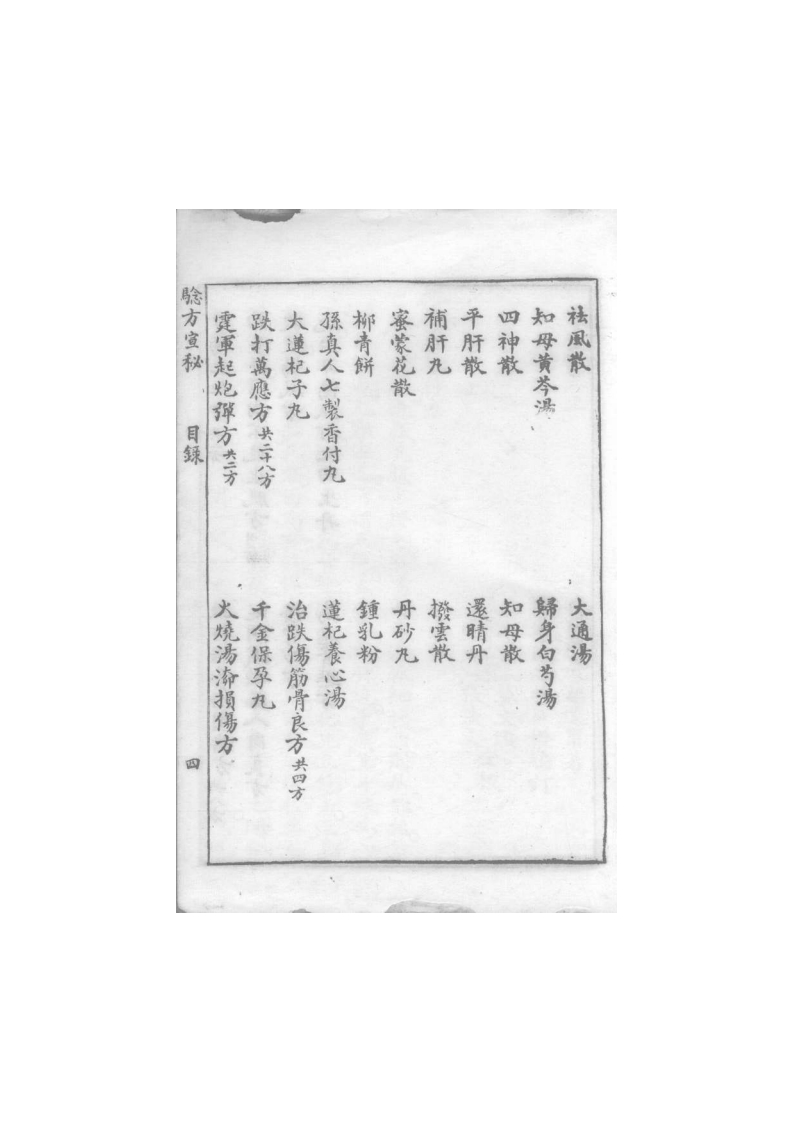 祛風散
大通湯
知母黄芩湯
歸身白芍湯
四神散
知母散
平肝散
還睛丹
補肝丸
撥雲散
蜜蒙花散
丹砂丸
柳青餅
鍾乳粉
孫真人七製香付丸
蓮杞養心湯
大蓮杞子丸
治跌傷筋骨良方共四方
跌打萬應方共二十八方
千金保孕丸
霆軍起炮彈方共二方
火燒湯瀹損傷方
驗方宣秘 目録 四